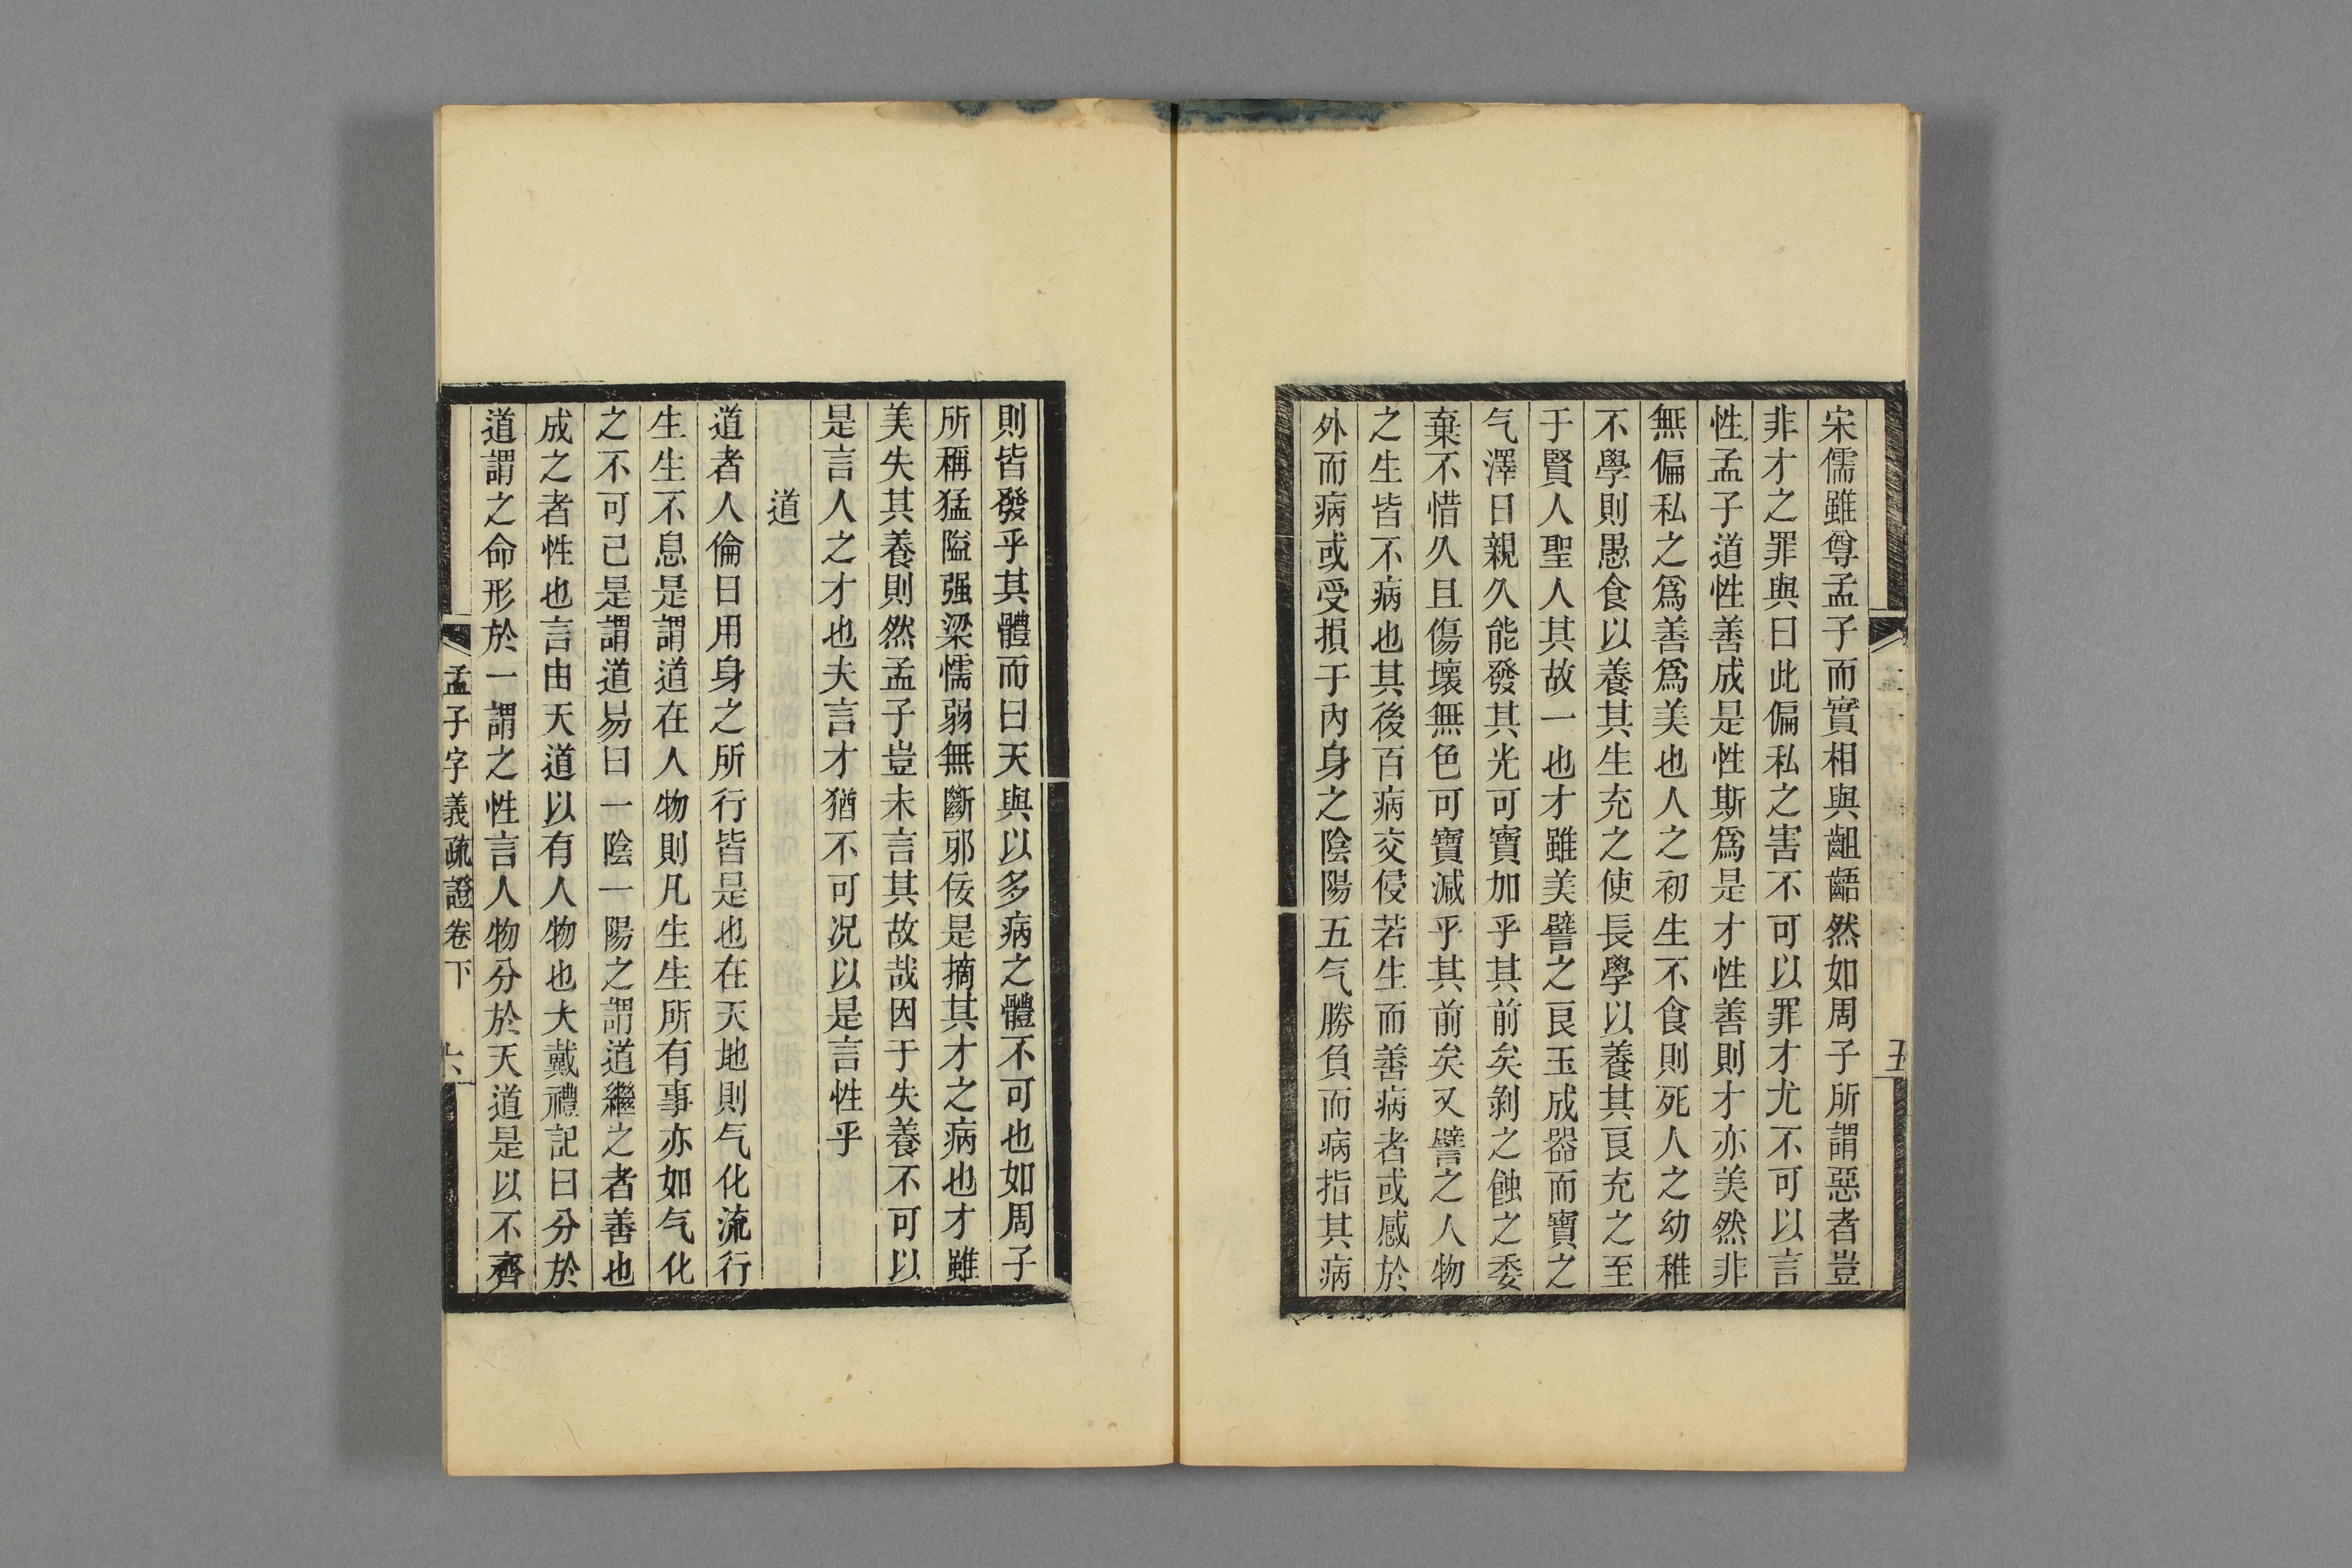 宋儒雖尊孟子而實相與齟齬然如周子所謂惡者豈
非才之罪與曰此偏私之害不可以罪才尤不可以言
性孟子道性善成是性斯爲是才性善則才亦美然非
無偏私之爲善爲美也人之初生不食則死人之幼稚
不學則愚食以養其生充之使長學以養其良充之至
于賢人聖人其故一也才雖美譬之良玉成器而寶之
气澤日親久能發其光可寶加乎其前矣剝之蝕之委
棄不惜久且傷壞無色可寶減乎其前矣又譬之人物
之生皆不病也其後百病交侵若生而善病者或感於
外而病或受損于內身之陰陽五气勝負而病指其病
則皆發乎其體而曰天與以多病之體不可也如周子
所稱猛隘强梁懦弱無斷邪佞是摘其才之病也才雖
美失其養則然孟子豈未言其故哉因于失養不可以
是言人之才也夫言才猶不可况以是言性乎
道
道者人倫日用身之所行皆是也在天地則气化流行
生生不息是謂道在人物則凡生生所有事亦如气化
之不可已是謂道易曰一陰一陽之謂道繼之者善也
成之者性也言由天道以有人物也大戴禮記曰分於
道謂之命形於一謂之性言人物分於天道是以不齊
孟子字義疏證卷下
六